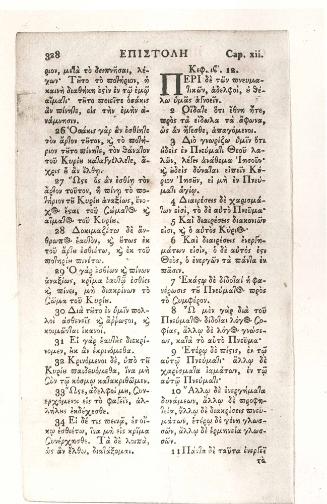 328 ΕΠΙΣΤΟΛΗ Cap. xii.
ριον, μετὰ τὸ δειπνῆσαι, λέ-
γων· Τῦτο τὸ ποτήριον, ἡ
καινὴ διαθήκη ἐςὶν ἐν τῷ ἐμῷ
αἵματι· τῦτο ποιεῖτε ὁσάκις
ἂν πίνητε, εἰς τὴν ἐμὴν ἀ-
νάμνησιν.
26 Ὁσάκις γὰρ ἂν ἐσθίητε
τὸν ἄρτον τῦτον, κ τὸ ποτή-
ριον τῦτο πίνητε, τὸν θάνατον
τοῦ Κυρίυ καταγγέλλετε, ἄ-
χρις ὗ ἂν ἔλθῃ.
27 Ὥςε ὃς ἂν ἐσθίῃ τὸν
ἄρτον τοῦτον, ἢ πίνῃ τὸ ποτή-
ριον τῦ Κυρίυ ἀναξίως, ἔνο-
χος ἔςαι τοῦ Σώματος κ
αἵματος τοῦ Κυρίυ.
28 Δοκιμαζέτω δὲ ἄν-
θρωπος ἑαυτὸν, κ ὕτως ἐκ
τοῦ ἄρτυ ἐσθιέτω, κ ἐκ τοῦ
ποτηρίυ πινέτω.
29 Ὁ γὰρ ἐσθίων κ πίνων
ἀναξίως, κρίμα ἑαυτῷ ἐσθίει
κ πίνει, μὴ διακρίνων τὸ
Σῶμα τοῦ Κυρίυ.
30 Διὰ τῦτο ἐν ὑμῖν πολ-
λοὶ ἀσθενεῖς κ ἄρρωςοι, κ
κοιμῶνται ἱκανοί.
31 Εἰ γὰρ ἑαυτὺς διεκρί-
νομεν, ὐκ ἂν ἐκρινόμεθα.
32 Κρινόμενοι δὲ, ὑπὸ τῦ
Κυρίυ παιδευόμεθα, ἵνα μὴ
σὺν τῷ κόσμῳ κατακριθῶμεν.
33 Ὥςε, ἀδελφοί μυ, συν-
ερχόμενοι εἰς τὸ φαγεῖν, ἀλ-
λήλυς ἐκδέχεσθε.
34 Εἰ δέ τις πεινᾷ, ἐν οἴ-
κῳ ἐσθιέτω, ἵνα μὴ εἰς κρίμα
συνέρχησθε. Τὰ δὲ λοιπὰ,
ὡς ἂν ἔλθω, διατάξομαι.
Κεφ. ιβ΄. 12.
ΠΕΡΙ δὲ τῶν πνευμα-
τικῶν, ἀδελφοὶ, ὐ θέ-
λω ὑμᾶς ἀγνοεῖν.
2 Οἴδατε ὅτι ἔθνη ἦτε,
πρὸς τὰ εἴδωλα τὰ ἄφωνα,
ὡς ἂν ἤγεσθε, ἀπαγόμενοι.
3 Διὸ γνωρίζω ὑμῖν ὅτι
ὐδεὶς ἐν Πνεύματι Θεοῦ λα-
λῶν, λέγει ἀνάθεμα Ἰησοῦν·
κ ὐδεὶς δύναται εἰπεῖν Κύ-
ριον Ἰησοῦν, εἰ μὴ ἐν Πνεύ-
ματι ἁγίῳ.
4 Διαιρέσεις δὲ χαρισμά-
των εἰσὶ, τὸ δὲ αὐτὸ Πνεῦμα·
5 Καὶ διαιρέσεις διακονιῶν
εἰσι, κ ὁ αὐτὸς Κύριος·
6 Καὶ διαιρέσεις ἐνεργη-
μάτων εἰσὶν, ὁ δὲ αὐτός ἐςι
Θεὸς, ὁ ἐνεργῶν τὰ πάντα ἐν
πᾶσιν.
7 Ἑκάςῳ δὲ δίδοται ἡ φα-
νέρωσις τῦ Πνεύματος πρὸς
τὸ συμφέρον.
8 Ὧι μὲν γὰρ διὰ τοῦ
Πνεύματος δίδοται λόγος σο-
φίας, ἄλλῳ δὲ λόγος γνώσε-
ως, κατὰ τὸ αὐτὸ Πνεῦμα·
9 Ἑτέρῳ δὲ πίςις, ἐν τῷ
αὐτῷ Πνεύματι· ἄλλῳ δὲ
χαρίσματα ἰαμάτων, ἐν τῷ
αὐτῷ Πνεύματι·
10 Ἄλλῳ δὲ ἐνεργήματα
δυνάμεων, ἄλλῳ δὲ προφη-
τεία, ἄλλῳ δὲ διακρίσεις πνευ-
μάτων, ἑτέρῳ δὲ γένη γλωσ-
σῶν, ἄλλῳ δὲ ἑρμηνεία γλωσ-
σῶν.
11 Πάντα δὲ ταῦτα ἐνεργεῖ
τὸ